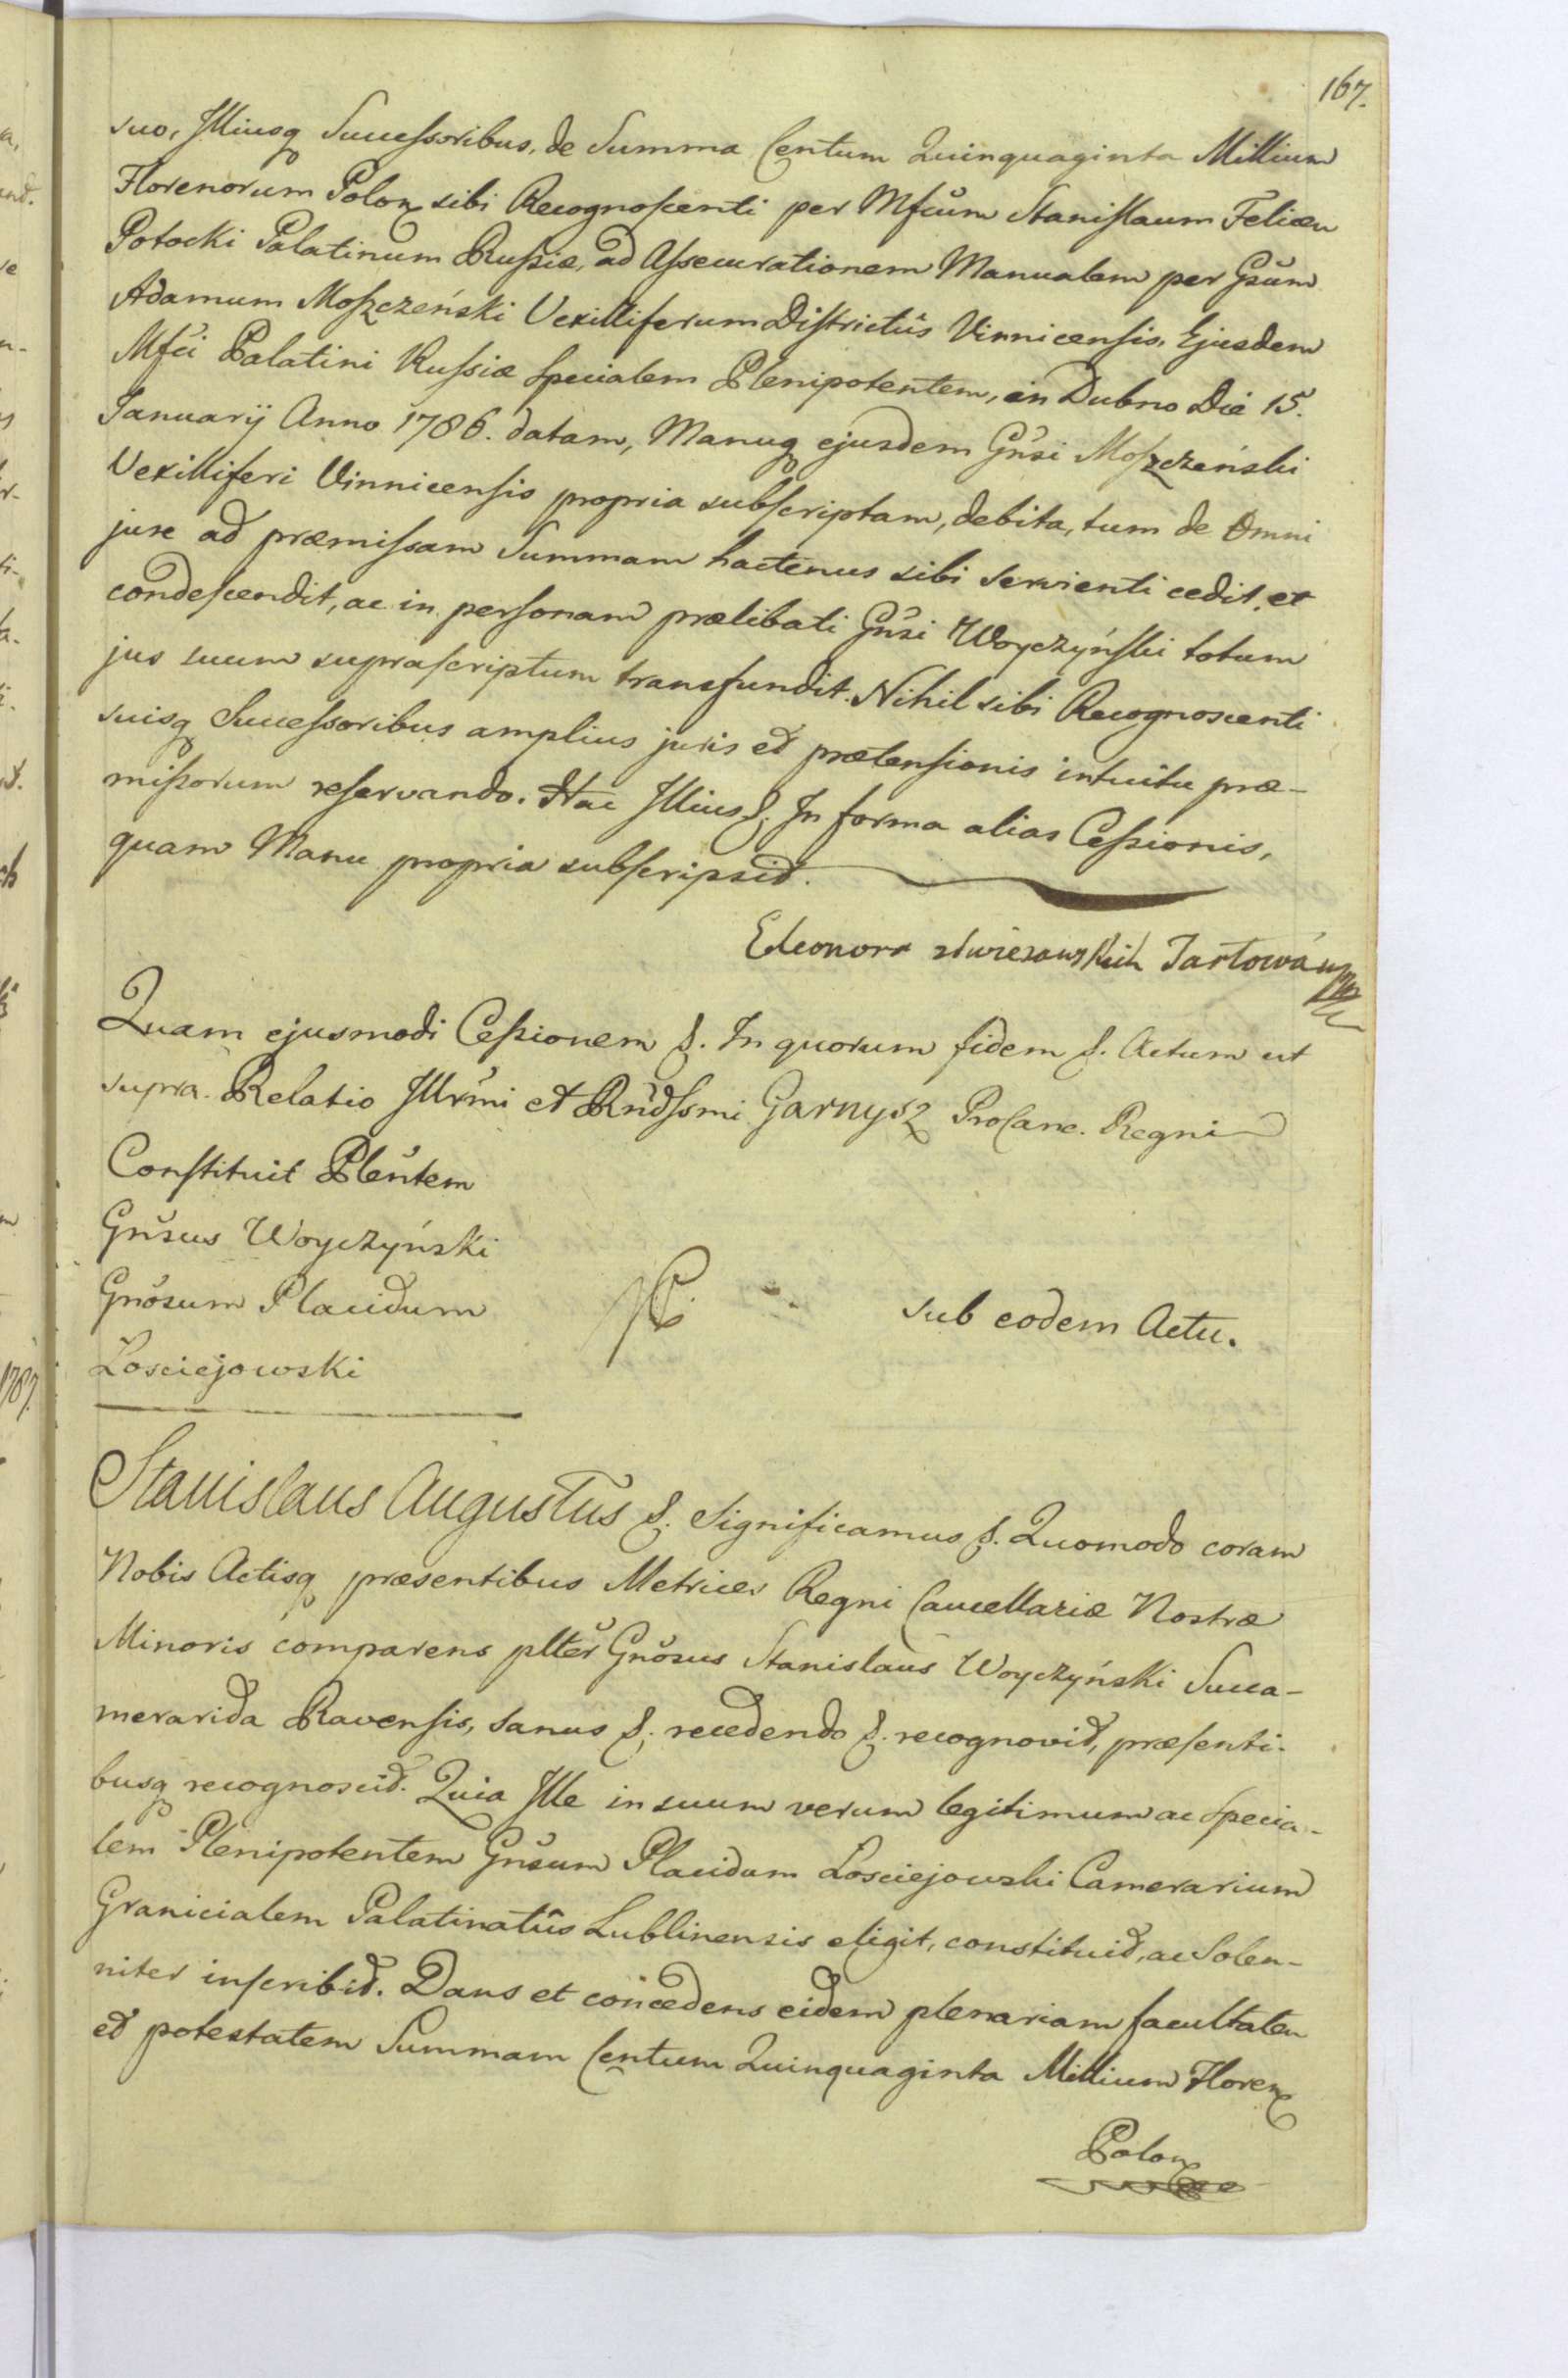 167.
suo, Illiusq Successoribus, de Summa Centum Quinquaginta Millium
Florenorum Polon sibi Recognoscenti per Mfcum Stanislaum Felicem
Potocki Palatinum Russiæ, ad Assecurationem Manualem per Gsum
Adamum Moszczeński Vexilliferum Districtûs Vinnicensis, Ejusdem
Mfci Palatini Russiæ specialem Plenipotentem, in Dubno Die 15.
Januarij Anno 1786. datam, Manuq ejusdem Gnsi Moszczeński
Vexilliferi Vinnicensis propria subscriptam, debita, tum de Omni
jure ad præmissam Summam hactenus sibi servienti cedit, et
condescendit, ac in personam prælibati Gnsi Woyczyński totum
jus suum suprascriptum transfundit. Nihil sibi Recognoscenti
suisq Successoribus amplius juris et prætensionis intuitu præ-
missorum reservando. Hac Illius §. In forma alias Cessionis,
quam Manu propria subscripsit.
Eleonora
Quam ejusmodi Cessionem §. In quorum fidem §. Actum ut
supra. Relatio Illrmi et Rndssmi Garnysz ProCanc. Regni
Constituit Plentem
Gnsus Woyczyński
Gnosum Placidum
Łosciejowski
sub eodem Actu.
Stanislaus Augustus §. Significamus §. Quomodo coram
Nobis Actisq præsentibus Metrices Regni Cancellariæ Nostræ
Minoris comparens plter Gnosus Stanislaus Woyczyński Succa-
merarida Ravensis, sanus §. recedendo §. recognovit, præsenti-
busq recognoscit. Quia Ille in suum verum legitimum ac specia-
lem Plenipotentem Gnsum Placidum Łosciejowski Camerarium
Granicialem Palatinatûs Lublinensis eligit, constituit, ac Solen-
niter inscribit. Dans et concedens eidem plenariam facultatem
et potestatem Summam Centum Quinquaginta Millium Floren
Polon